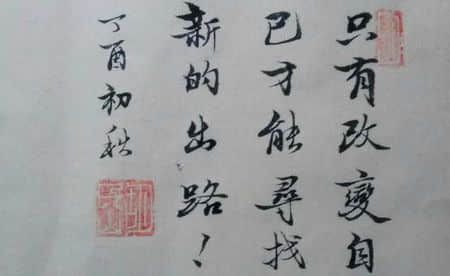 只有改變自
已才能尋找
新的出路！
丁酉初秋